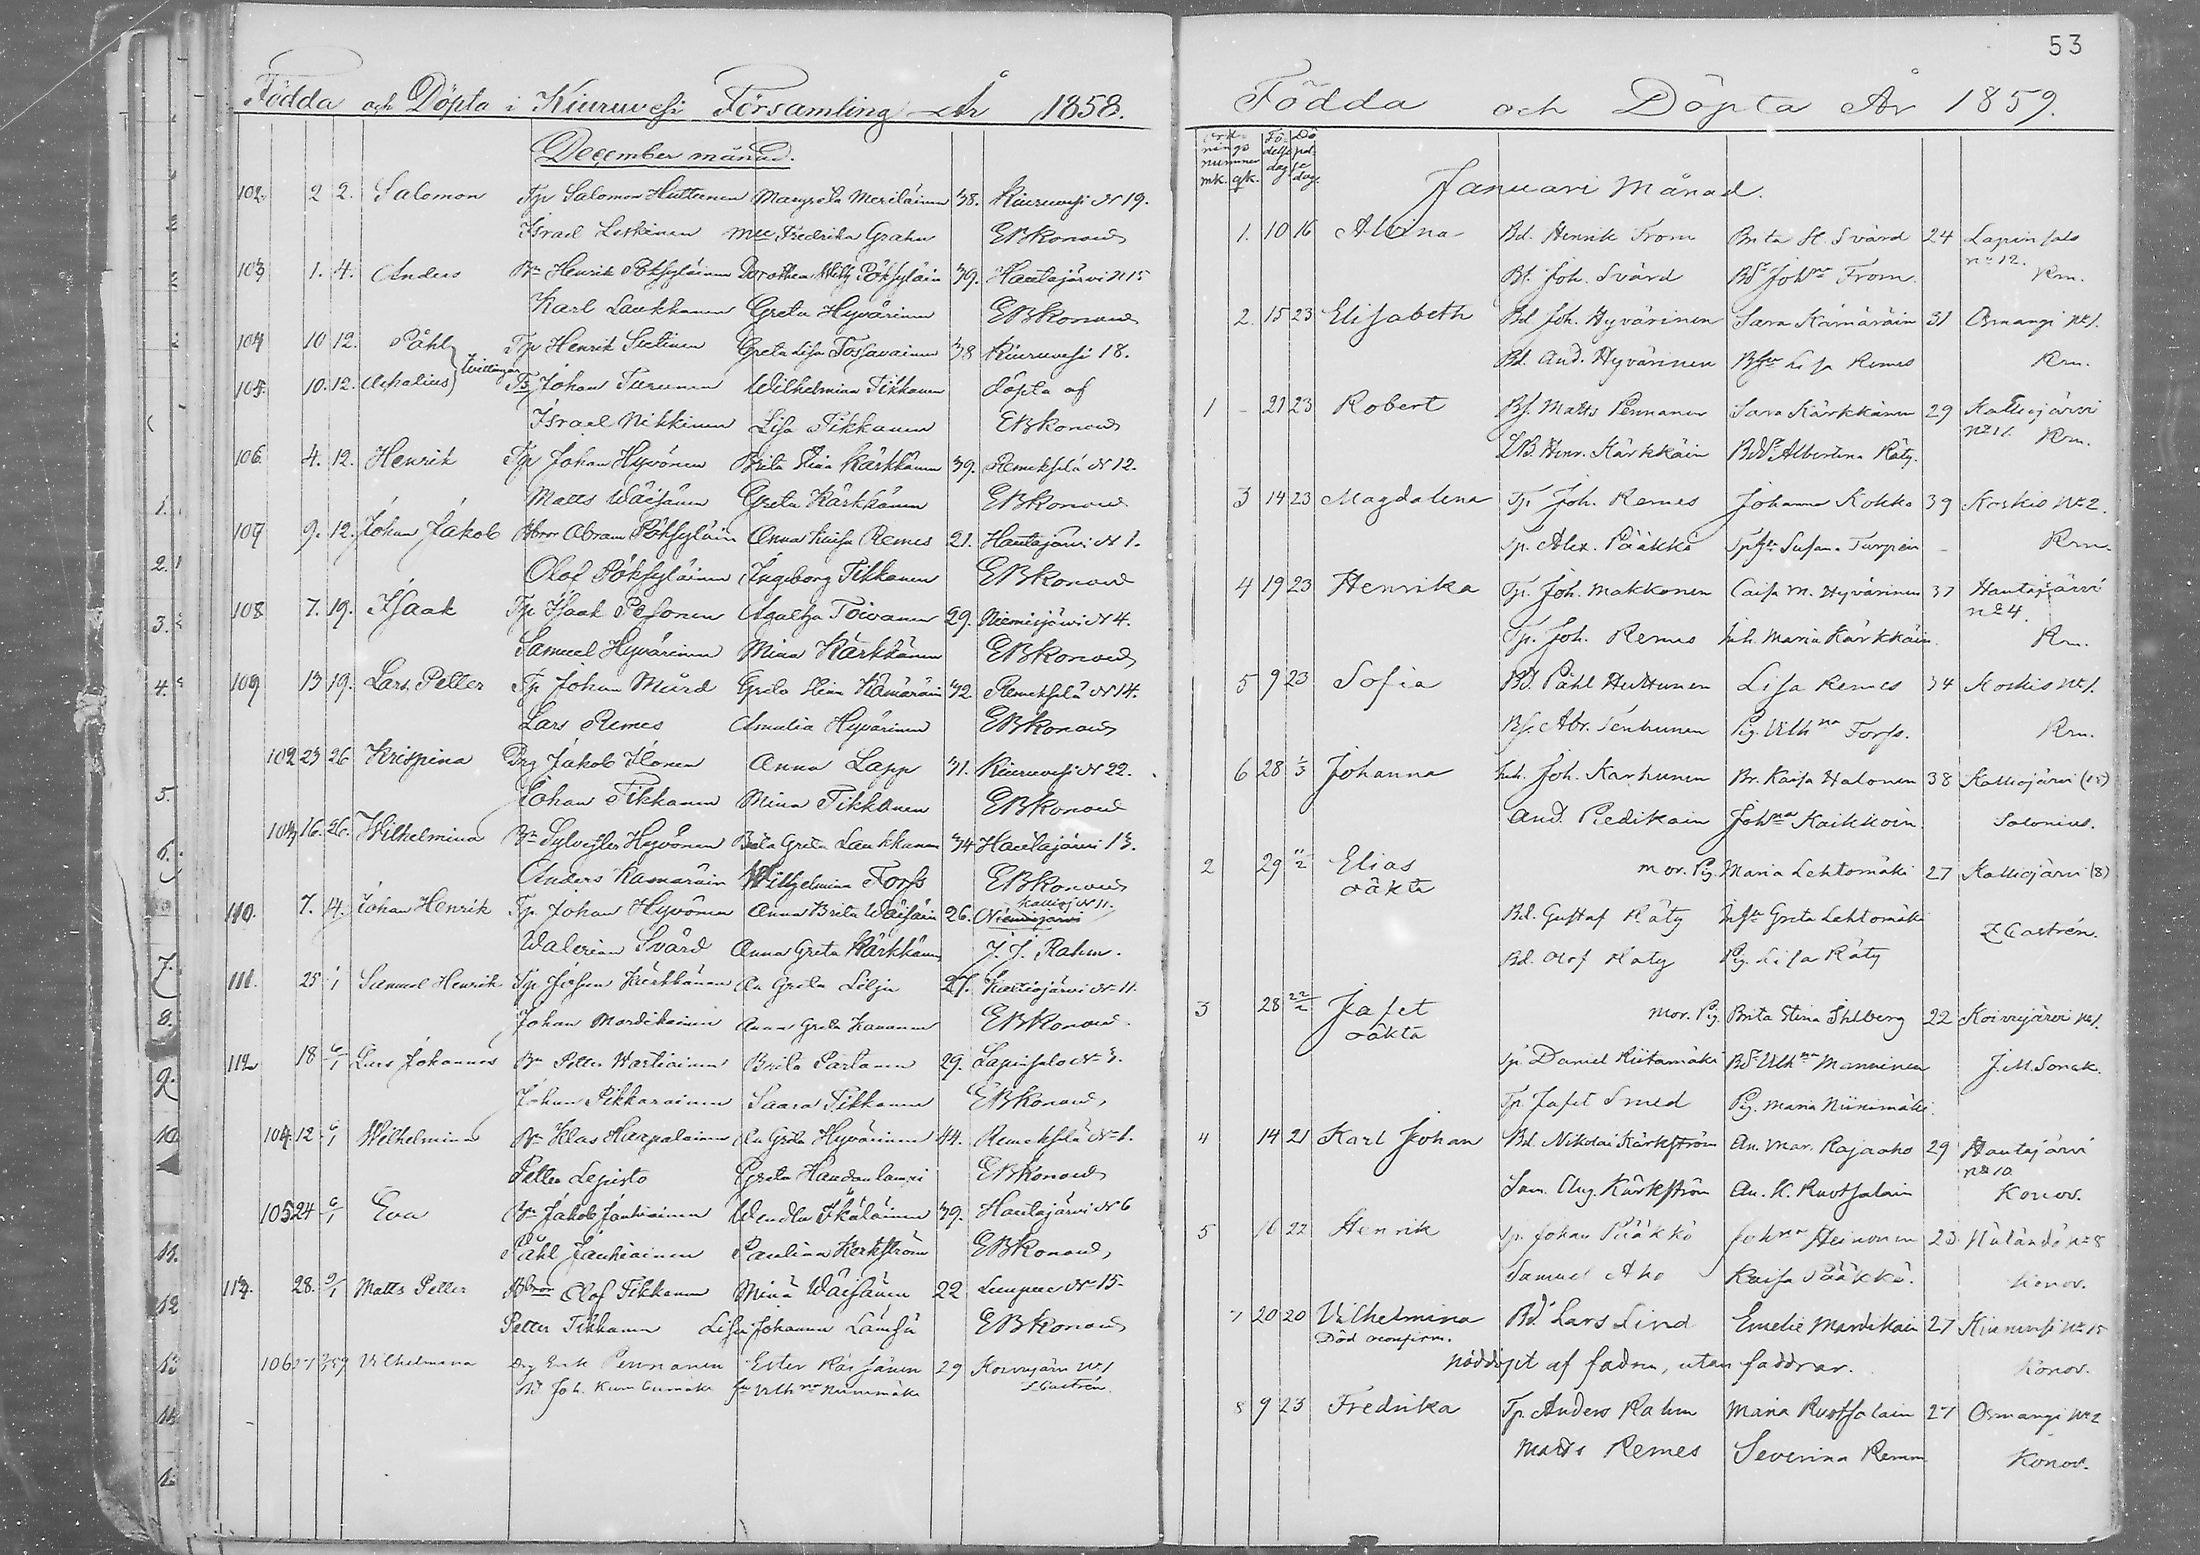 Födda och Döpta i Kiuruvesi Församling År 1858.
December månad.
102. 2 2. Salomon Tp Salomon Huttunen Margreta Meriläinen 38. Kiuruvesi N 19.
Israel Leskinen Fredrika Grahn EBKonow
103 1. 4. Anders Bn Henrik Pöksyläinen Dorothea 39. Hautajärvi N 15
Karl Laukkanen Greta Hyvärinen EBKonow
104 10 12. Påhl Tp Henrik Greta Lisa Tossavainen 38 Kiuruvesi 18.
tvillingar
105. 10. 12. Johan Turunen Wilhelmina Tikkanen döpta af
Israel Nikkinen Lisa Tikkanen EBKonow
106. 4. 12. Henrik Tp Johan Hyvönen Brita Stina Kärkkänen 39. Remeksilä N 12.
Matts Wäisänen Greta Kärkkänen EBKonow
107 9. 12. Johan Jakob Abram Pöksyläin Anna Kaisa Remes 21. Hautajärvi N 1.
Olof Pöksyläinen Ingeborg Tikkanen EBKonow
108 7. 19. Isaak Tp Isaak Pesonen Agatha Toivanen 29. Niemisjärvi N 4.
Samuel Hyvärinen Mina Kärkkänen EBKonow
109 13 19. Lars Petter Tp Johan Mård Greta Stina Kämäräin 32 Remeksilä N 14.
Lars Remes Amalia Hyvärinen EBKonow
102 23 26 Krispina Drg Jakob Ilonen Anna Lapp 31. Kiuruvesi N 22.
Johan Tikkanen Mina Tikkanen EBKonow
103 16. 26. Wilhelmina Bn Sylvester Hyvönen Brita Greta Laukkanen 34 Hautajärvi 13.
Anders Kämäräin Wilhelmina Forss EBKonow
Kallioj N 11.
110. 7. 14. Johan Henrik Tp Johan Hyvönen Anna Brita Wäisäin 26. Niemisjärvi
Walerian Svärd Anna Greta Kärkkänen J. J. Rahm.
111. 25 1 Samuel Henrik Tp Johan Kärkkänen An Greta Lilja 27. Kalliojärvi N 11.
Johan Mardikainen Anna Greta Kananen EBKonow
112 18 6/1 Lars Johannes Bn Petter Wartiainen Brita Partanen 29. Lapinsalo N 3.
Johan Pikkarainen Saara Tikkanen EBKonow
104. 12 6/1 Wilhelmina Bn Klas Haapalainen An Greta Hyvärinen 44. Remeksilä N 1.
Petter Lepisto Greta EBKonow
105 24 6/1 Eva Bn Jakob Jauhiainen Wendla Ikäläinen 39. Hautajärvi N 6
Påhl Jauhiainen Paulina Kerkström EBKonow
113. 28. 9/1 Matts Petter Olof Tikkanen Mina Wäisänen 22 N 15
Petter Tikkanen Lisa Johanna Lämsä EBKonow
106 27 Vilhelmina Drg Erik Pennanen Ester Räisänen 29 Koivujärvi No 1
Joh. Kumpumäki Vilhna Niinimäki Z Castrén
53
Födda och Döpta År 1859.
Ordningsnummer mk. qk. Födelsedag Döpelsedag.
Januari Månad.
1. 10 16 Alvina Bd. Henrik From Brita St. Svärd 24 Lapinsalo
no 12.
Bd. Joh. Svärd Bdr Johna From. Rm.
2. 15 23 Elisabeth Bd. Joh. Hyvärinen Sara Kämäräin 31 Osmangi No 1.
Bd. And. Hyvärinen Lisa Remes Rm.
1 - 21 23 Robert Bs. Matts Pennanen Sara Kärkkänen 29 Kalliojärvi
No 11. Rm.
Henr. Kärkkäin Albertina Räty.
3 14 23 Magdalena Tp. Joh. Remes Johanna Kokko 39 Koskis No 2.
Tp. Alex. Pääkkö Susana Turpein - Rm.
4 19 23 Henrika Tp. Joh. Makkonen Caisa M. Hyvärinen 37 Hautajärvi
no 4.
Tp. Joh. Remes Inh. Maria Kärkkäin. Rm.
5 9 23 Sofia Bd. Påhl Huttunen Lisa Remes 34 Koskis No 1.
Bs. Abr. Tenhunen Pig. Vilhna Forss. Rm.
6 28 1/3 Johanna Inh. Joh. Karhunen Br. Kaisa Halonen 38 Kalliojärvi (15)
And. Piedikäin Johna Kaikkoin. Salonius.
2 29 11/2 Elias mor. Pig. Maria Lehtomäki 27 Kalliojärvi (8)
oäkta
Bd. Gustaf Räty Greta Lehtomäki Z Castrén.
Bd. Olof Räty Pig. Lisa Räty
3 28 22/2 Jafet mor. Pig. Brita Stina Ihlberg 22 Koivujärvi No 1.
oäkta
Tp. Daniel Riitamäki Bdr Vilhna Manninen J. M. Sonck.
Tp. Jafet Smed Pig. Maria Niinimäki.
4 14 21 Karl Johan Bd. Nikolai Kärkström An. Mar. Rajaaho 29 Hautajärvi
no 10
Sam. Aug. Kärkström An. K. Ruotsalain Konov.
5 16 22 Henrik Tp. Johan Pääkkö Johna Heinonen 23. No 8
Samuel Aho Kaisa Pääkkö. Konov.
7 20 20 Vilhelmina Bd. Lars Lind Emelie Mardikain 27 Kiuruvesi No 15
Död oconfirm.
nöddöpt af fadren, utan faddrar. Konov.
8 9 23 Fredrika Tp. Anders Rahm Maria Ruotsalain 27 Osmangi No 2
Matts Remes Severina Remes Konov.